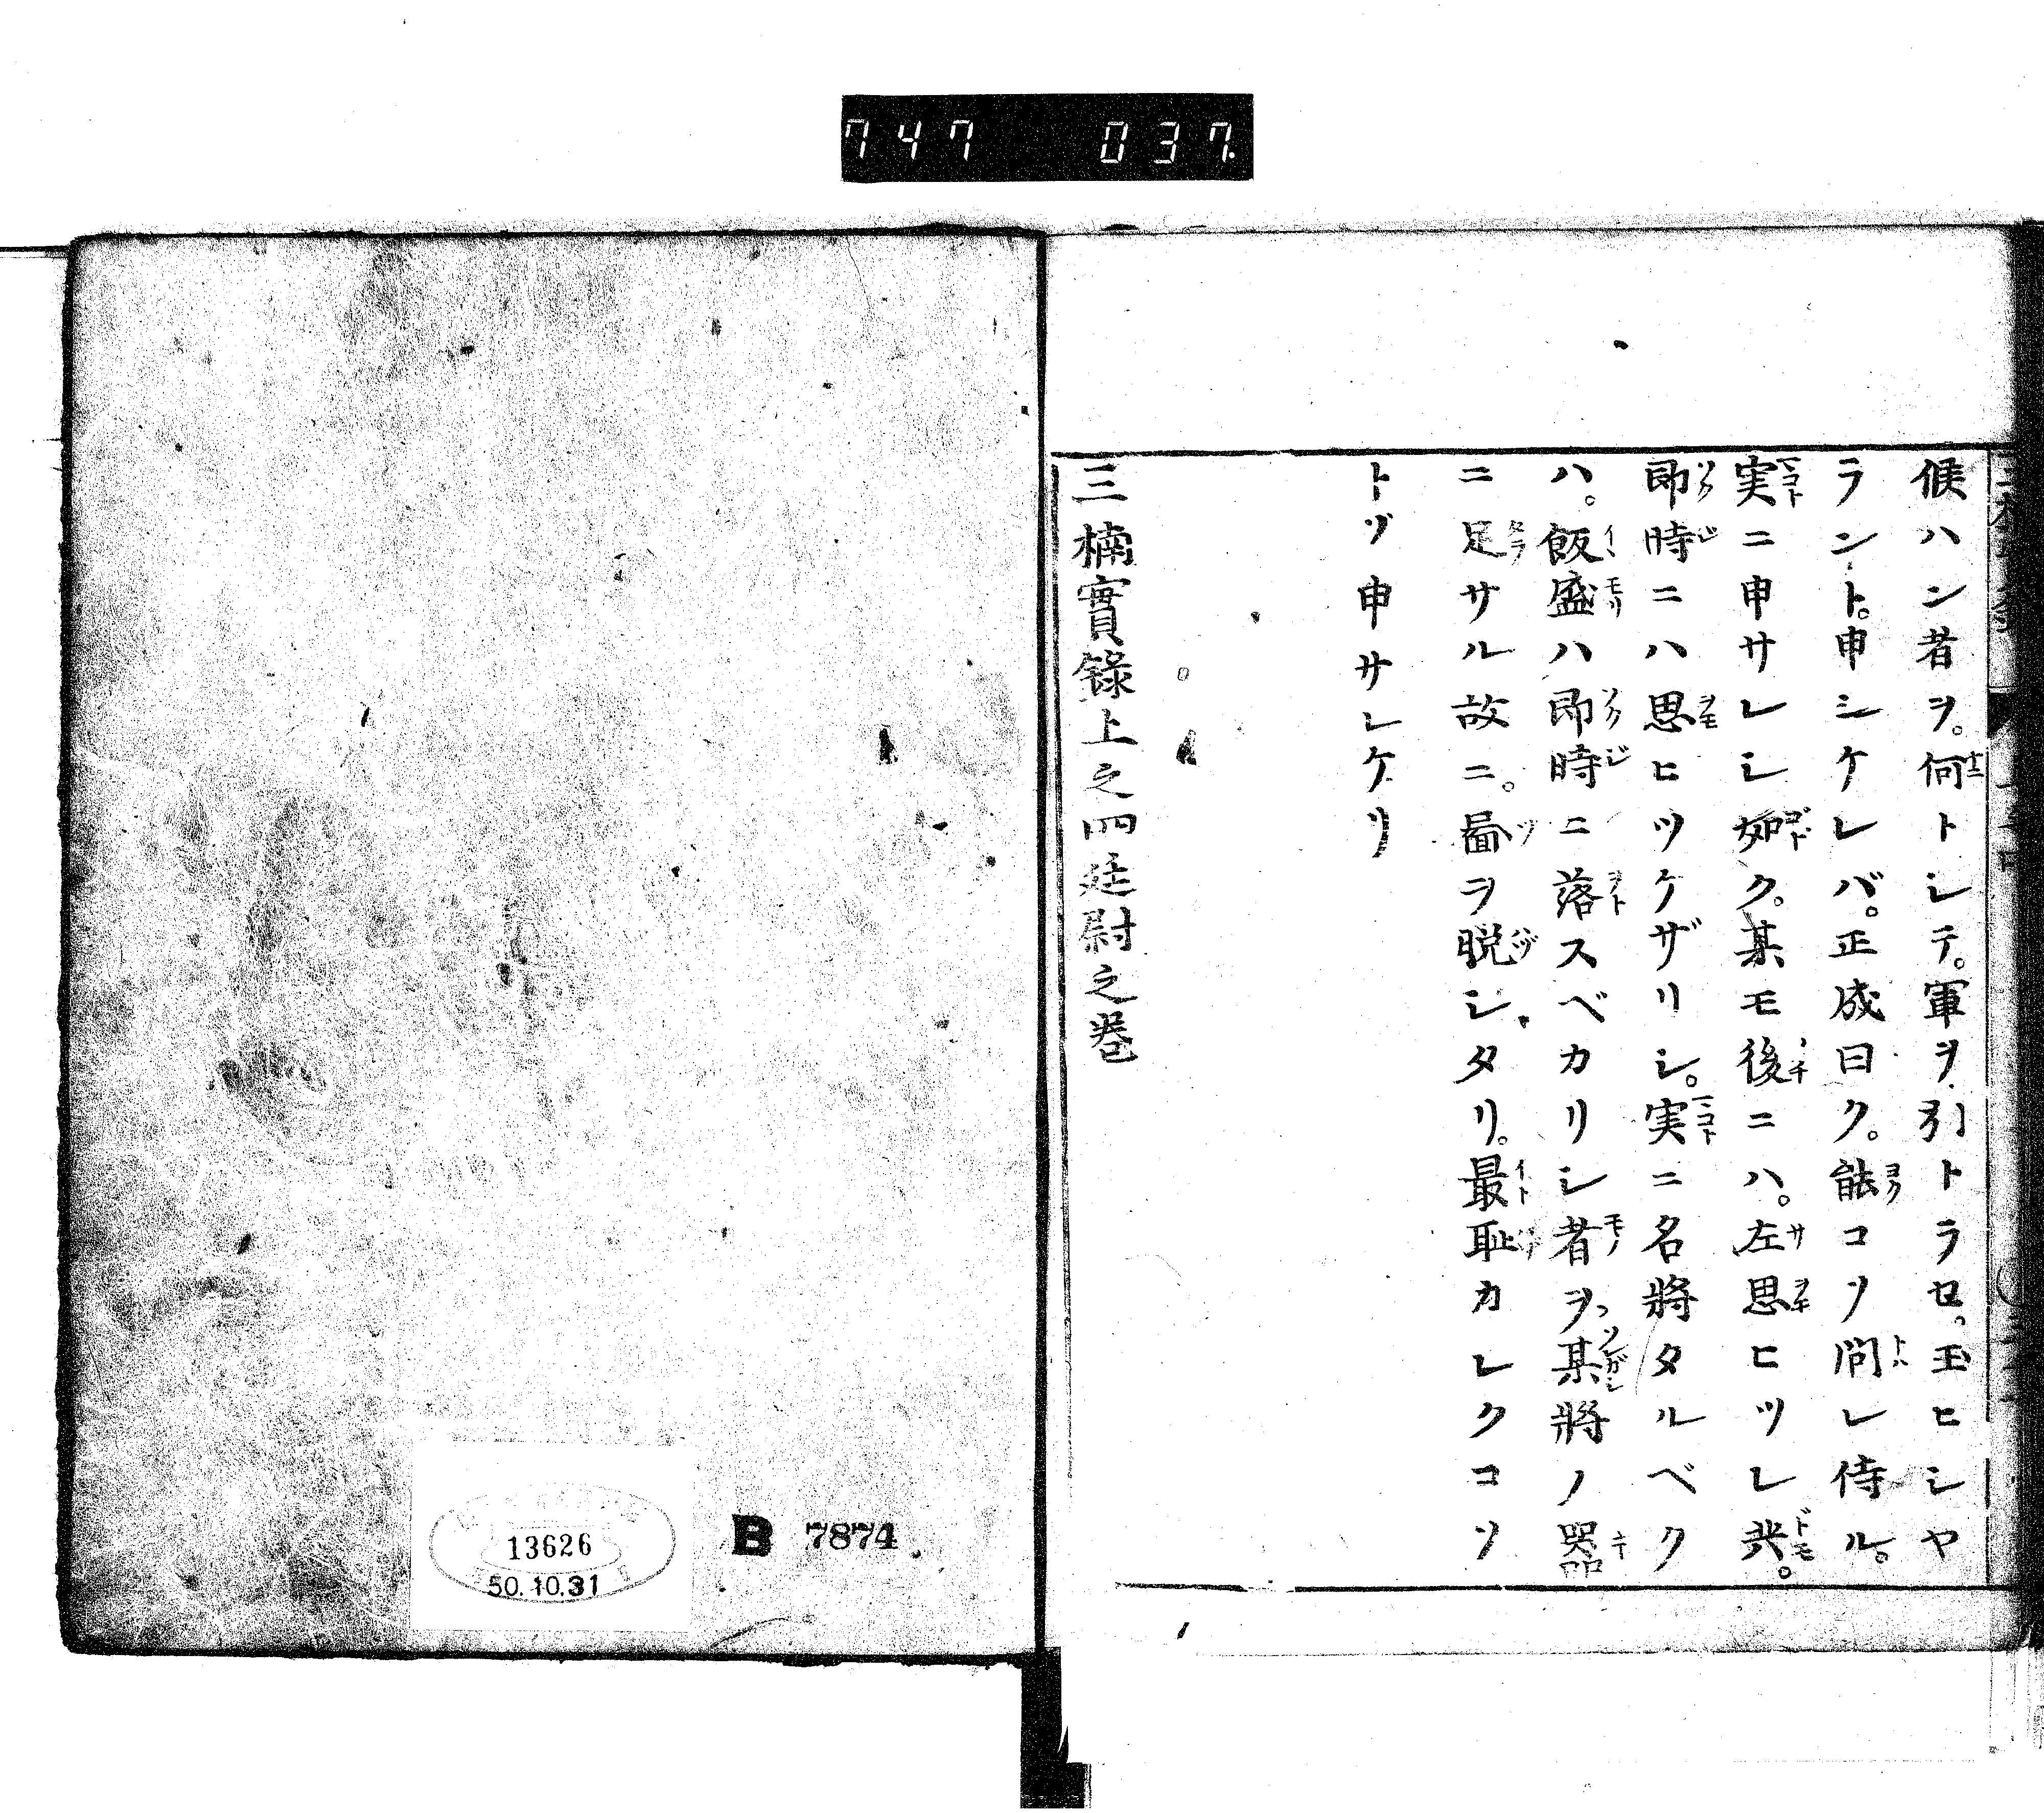 747 037.
候ハン者ヲ。何トシテ。軍ヲ引トラセ。玉ヒシヤ
ラント。申シケレバ。正成曰ク。能コソ問レ侍ル。
実ニ申サレシ如ク。某モ後ニハ。左思ヒツレ𪜈。
即時ニハ思ヒツケザリシ。実ニ名將タルベク
ハ。飯盛ハ即時ニ落スベカリシ者ヲ、某將ノ器
ニ足サル故ニ。圖ヲ脱シタリ。最耻カレクコソ
トゾ申サレケリ
三楠實錄上之四廷尉之巻
13626
50.10.31
B 7874